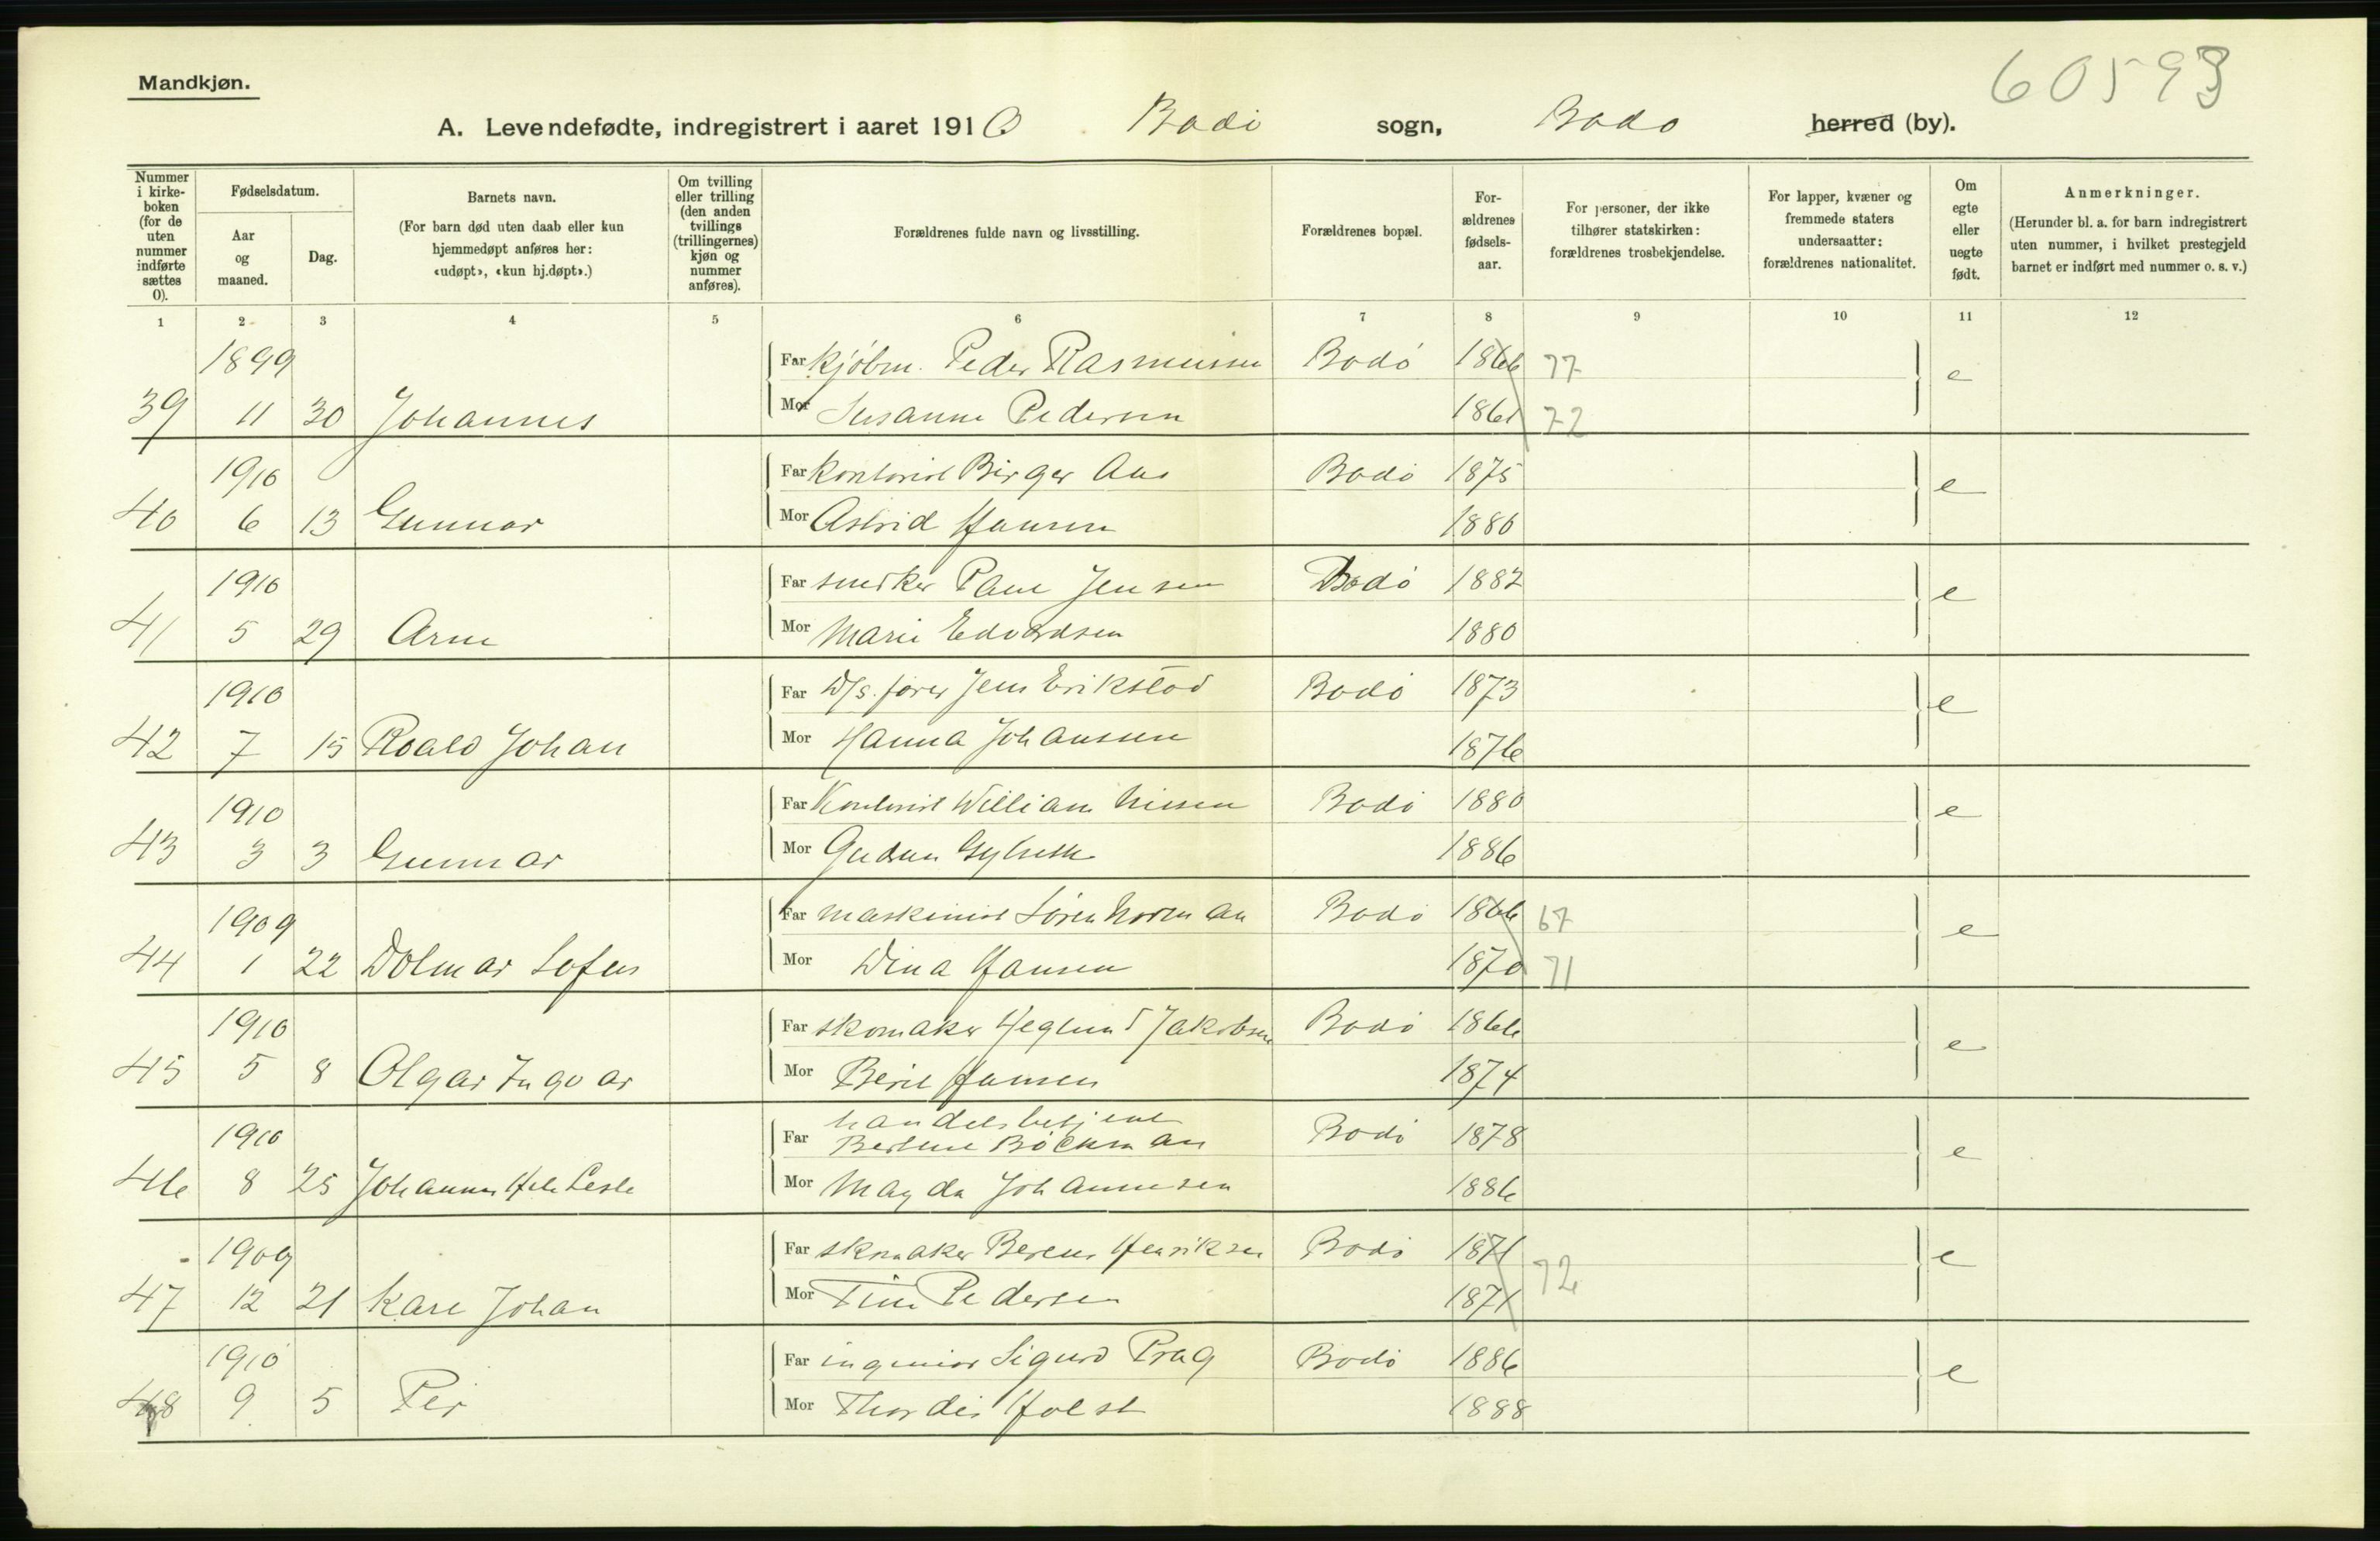 60593
Mandkjøn.
A. Levendefødte, indregistrert i aaret 1910 Bodø sogn, Bodø herred (by).
Nummer i kirke-boken (for de uten nummer indførte sættes 0).
Fødselsdatum.
Aar og maaned.
Dag.
Barnets navn.
(For barn død uten daab eller kun hjemmedøpt anføres her: «udøpt», «kun hj.døpt».)
Om tvilling eller trilling (den anden tvillings (trillingernes) kjøn og nummer anføres).
Forældrenes fulde navn og livsstilling.
Forældrenes bopæl.
For-ældrenes fødsels-aar.
For personer, der ikke tilhører statskirken: forældrenes trosbekjendelse.
For lapper, kvæner og fremmede staters undersaatter: forældrenes nationalitet.
Om egte eller uegte født.
Anmerkninger.
(Herunder bl. a. for barn indregistrert uten nummer, i hvilket prestegjeld barnet er indført med nummer o. s. v.)
1 2 3 4 5 6 7 8 9 10 11 12
1899 Far kjøbm. Peder Rasmussen Bodø 1866 77 e
39 11 30 Johannes Mor Susanne Pedersen 1861 72
1910 Far kontorist Birger Aas Bodø 1875 e
40 6 13 Gunnar Mor Astrid Hansen 1880
1910 Far snedker Paul Jensen Bodø 1882 e
41 5 29 Arne Mor Marie Edvardsen 1880
1910 Far D/s. fører Jens Erikstad Bodø 1873 e
42 7 15 Roald Johan Mor Hanna Johansen 1876
1910 Far Kontorist William Nissen Bodø 1880 e
43 3 3 Gunnar Mor Gudrun 1886
1909 Far maskinist Søren Norman Bodø 1866 67 e
44 1 22 Dolmar Sofus Mor Dina Hansen 1870 71
1910 Far skomaker Heglund Jakobsen Bodø 1866 e
45 5 8 Olgar Ingvar Mor Berit Hansen 1874
1910 Far handelsbetjent
Bøckman Bodø 1878 e
46 8 25 Johannes Mor Magda Johannesen 1886
1909 Far skomaker Henriksen Bodø 1871 e
47 12 21 Kare Johan Mor Pedersen 1871 72
1910 Far ingeniør Sigurd Prag Bodø 1886 e
48 9 5 Per Mor Thordis Holst 1888